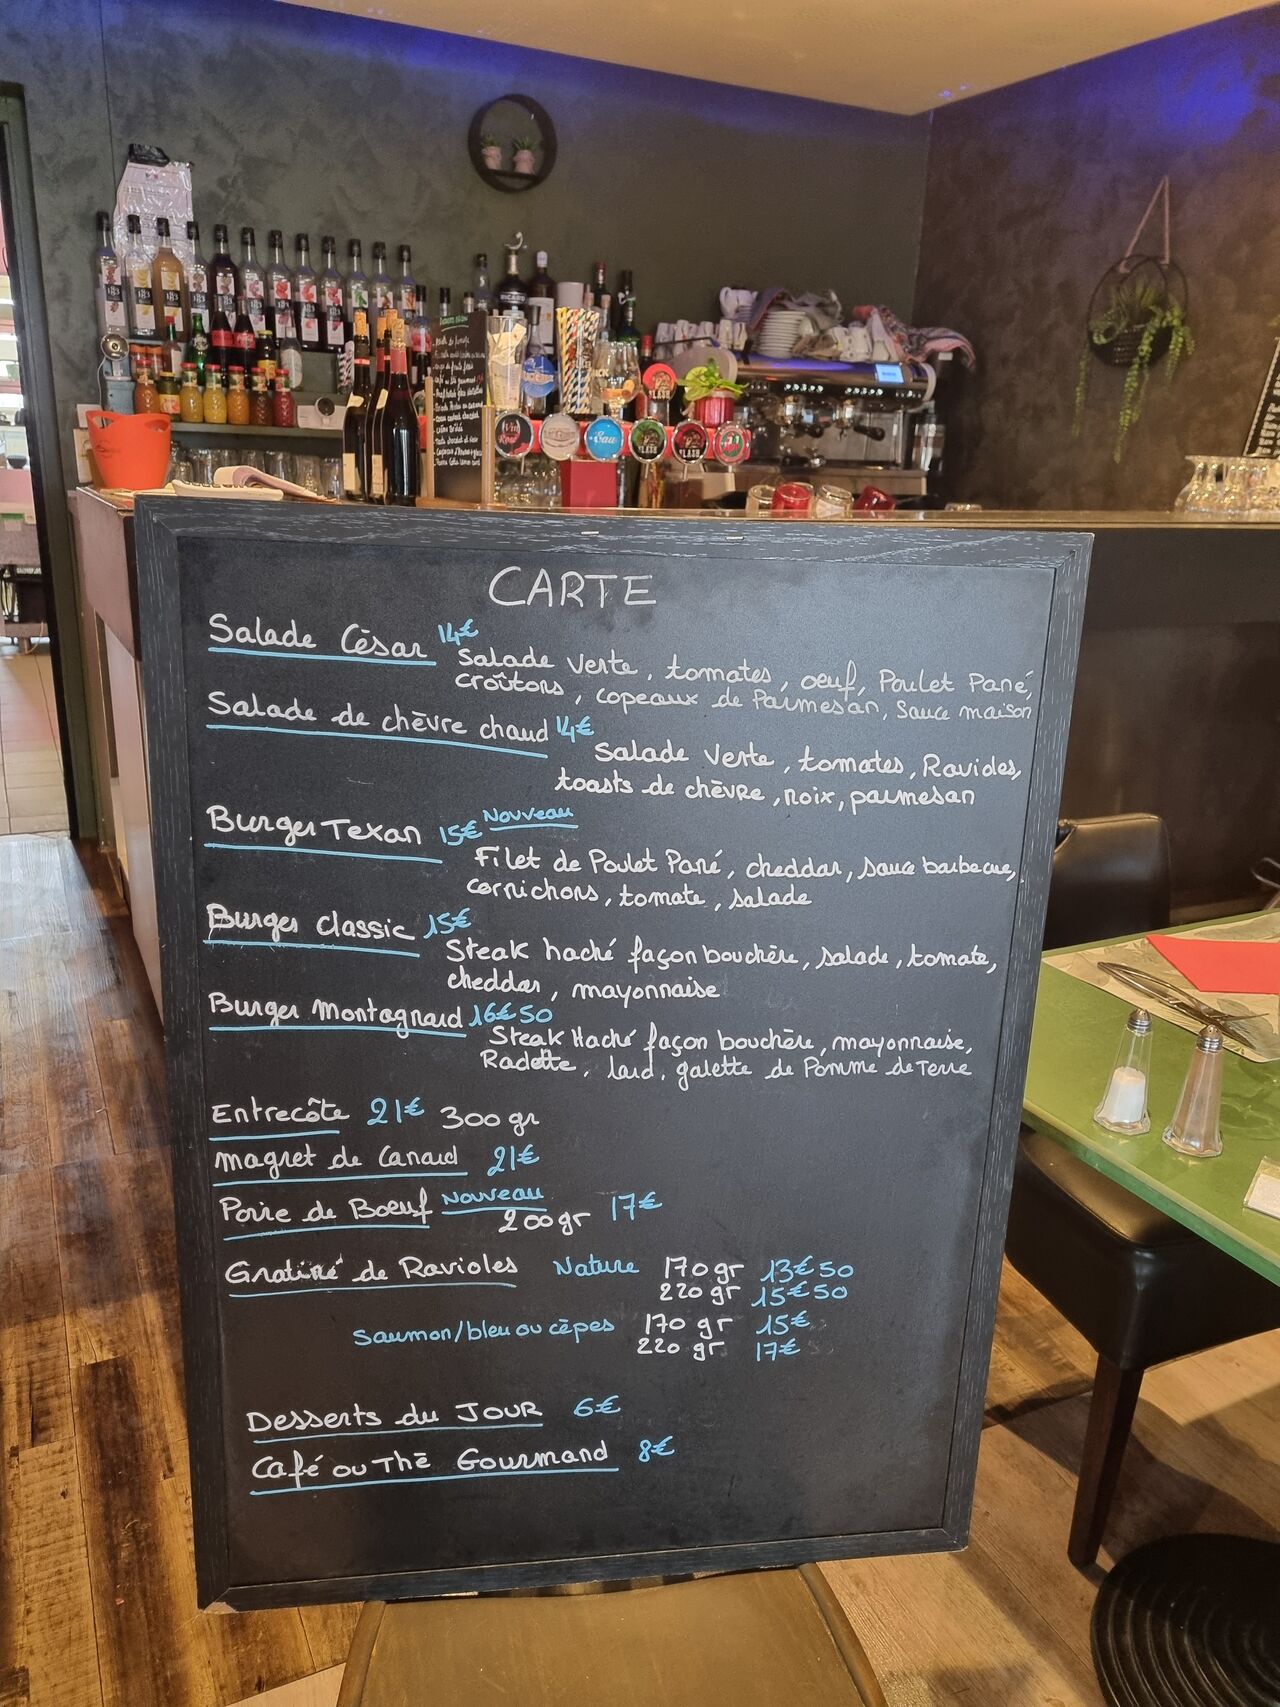 CARTE
Salade César 14€
Salade verte, tomates, oeuf, Poulet Pané,
croûtons, copeaux de Parmesan, Sauce maison
Salade de chèvre chaud 14€
Salade verte, tomates, Ravioles,
toasts de chèvre, noix, parmesan
Burger Texan 15€ Nouveau
Filet de Poulet Pané, cheddar, sauce barbecue,
cornichons, tomate, salade
Burger classic 15€
Steak haché façon bouchère, salade, tomate,
cheddar, mayonnaise
Burger Montagnard 16€50
Steak Haché façon bouchère, mayonnaise,
Raclette, lard, galette de Pomme de Terre
Entrecôte 21€ 300gr
magret de Canard 21€
Poire de Boeuf Nouveau 200gr 17€
Gratiné de Ravioles Nature 170gr 13€50
220gr 15€50
Saumon/bleu ou cèpes 170 gr 15€
220 gr 17€
Desserts du JOUR 6€
Café ou Thé Gourmand 8€